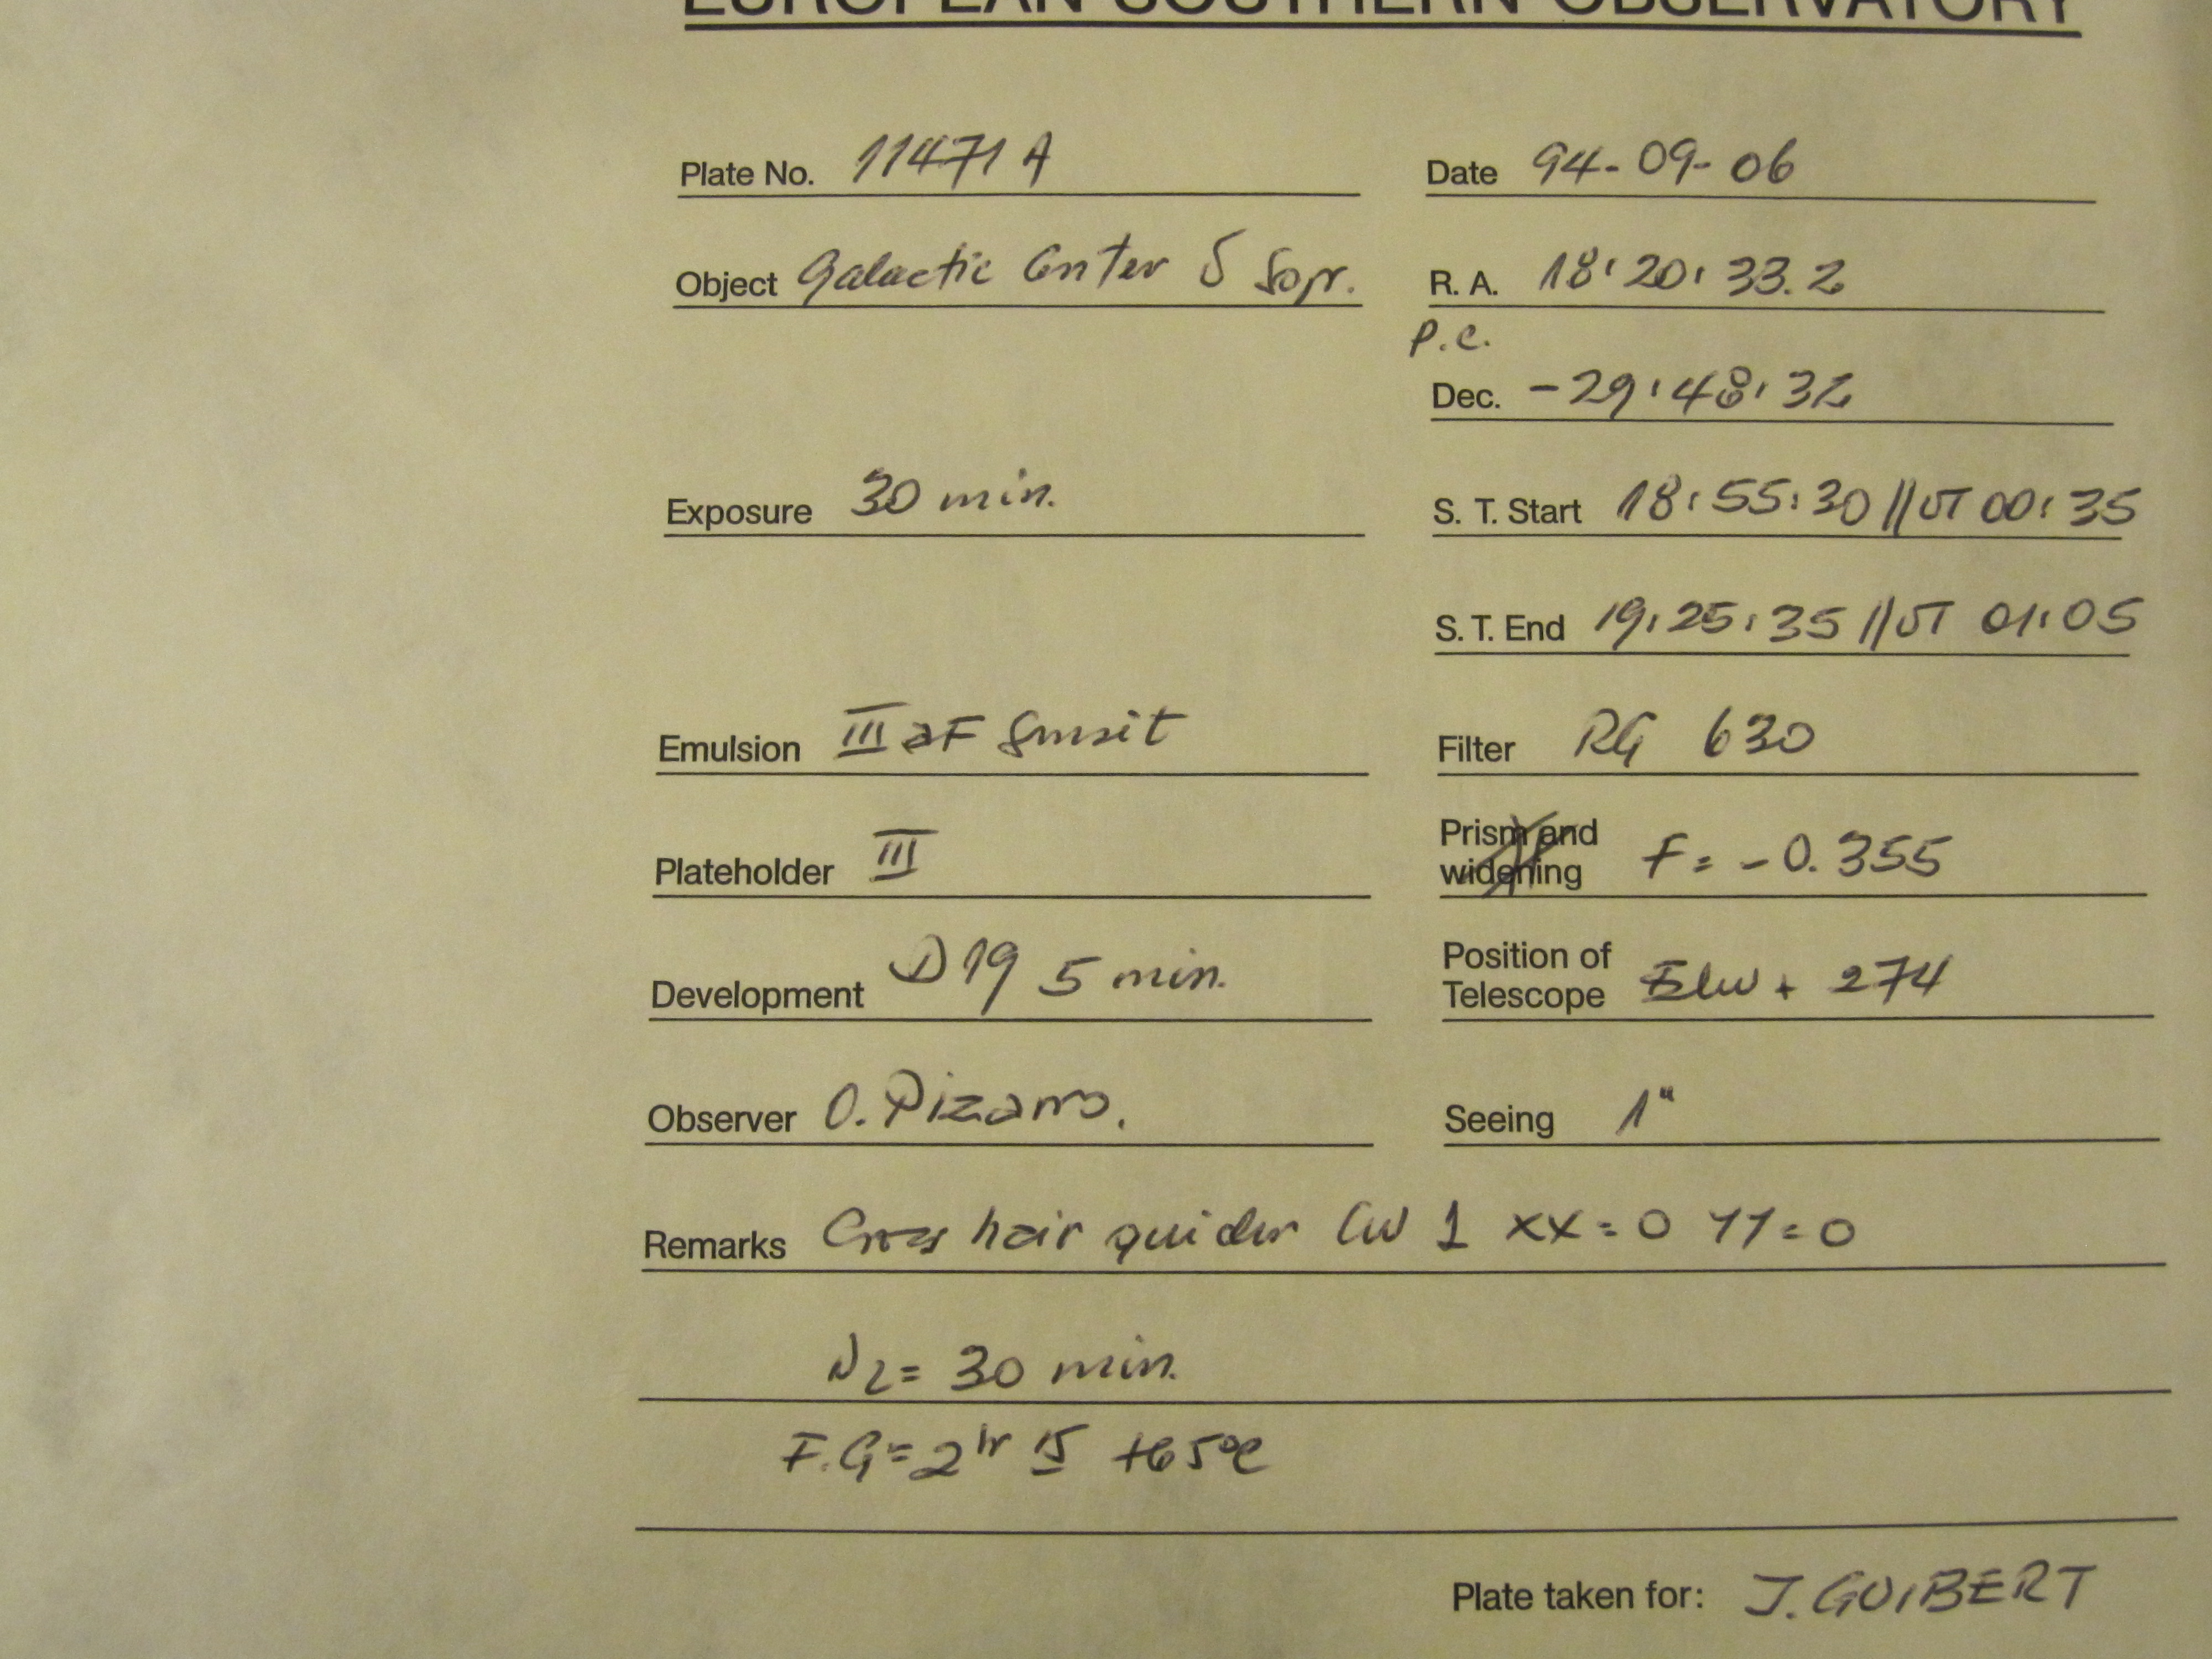 EUROPEAN SOUTHERN OBSERVATORY
Plate No. 11471 A
Date 94-09-06
Object Galactic Center 5
R. A. 18:20:33.2
P.C.
Dec. -29:48:32
Exposure 30 min.
S. T. Start 18:55:30 // UT 00:35
S. T. End 19:25:35 // UT 01:05
Emulsion III aF
Filter RG 630
Plateholder III
Prism and
widening F= -0.355
Development D19 5 min.
Position of
Telescope + 274
Observer O. Pizarro.
Seeing 1"
Remarks Cross hair guider CW 1 XX=0 YY=0
N2= 30 min.
F.G= 2hr 15 +65°C
Plate taken for: J. GUIBERT